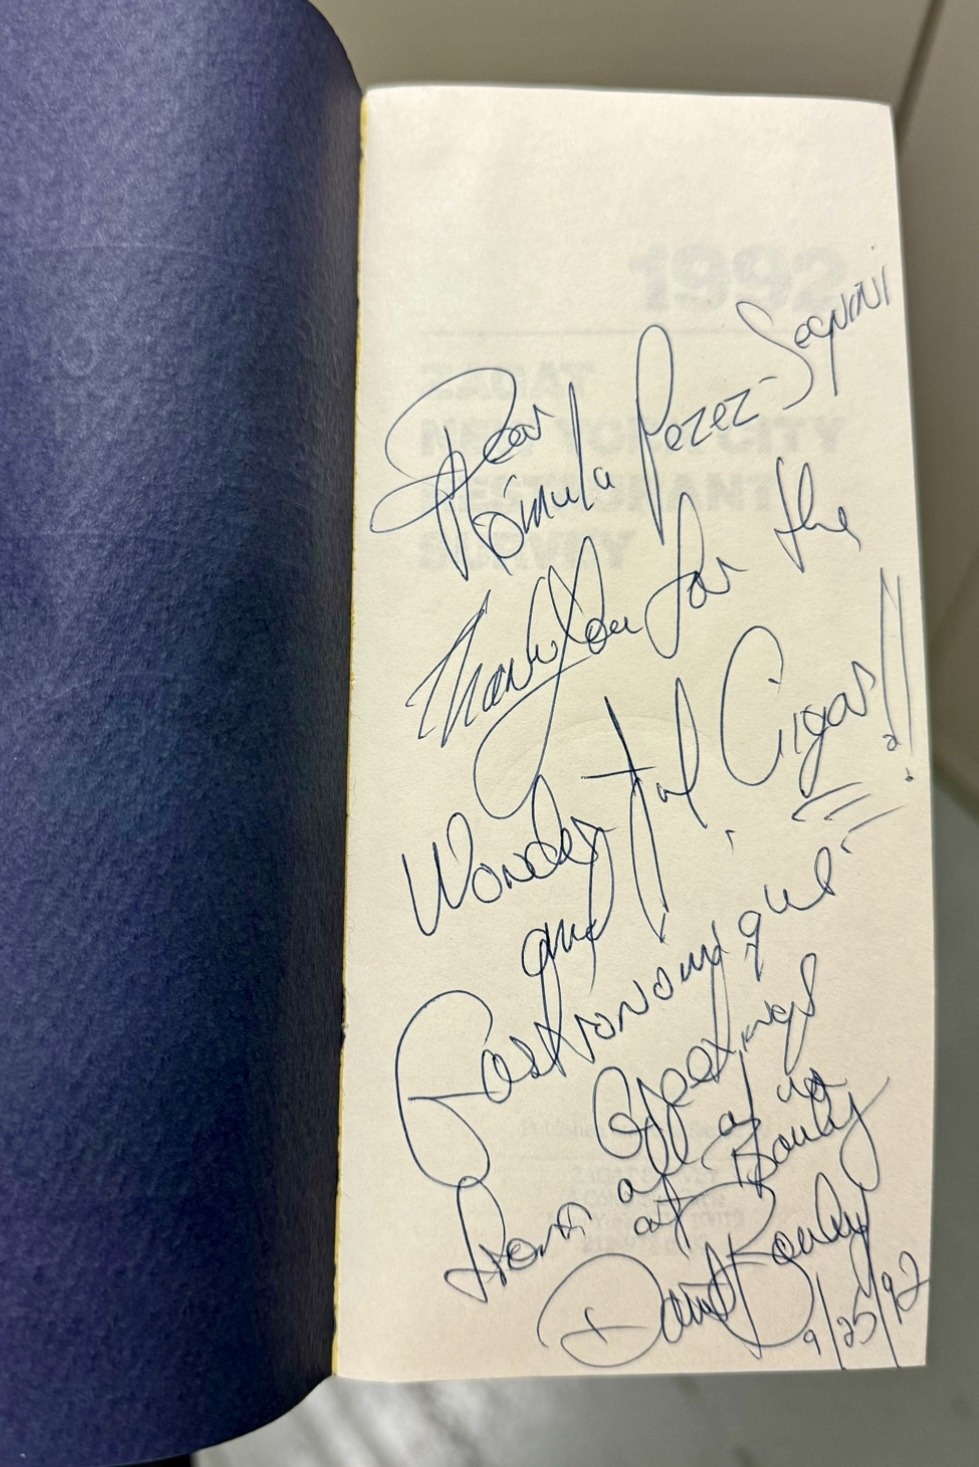 1992
ZAGAT
NEW YORK CITY
RESTAURANT
SURVEY
Dear
Rómulo Perez-Segnini
Thank you for the
Wonderful Cigars!!
and
Gastronomique
Greetings
from all of us
at Bouley
David Bouley
9/25/92